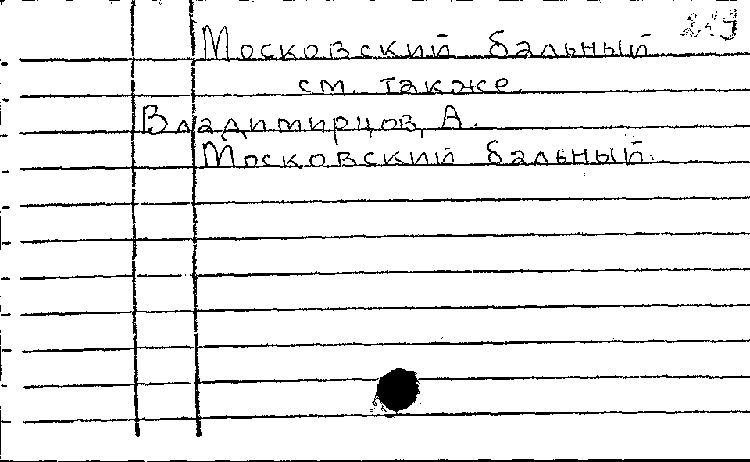 Московский бальный
см. также
Владимирцов, А.
Московский бальный.